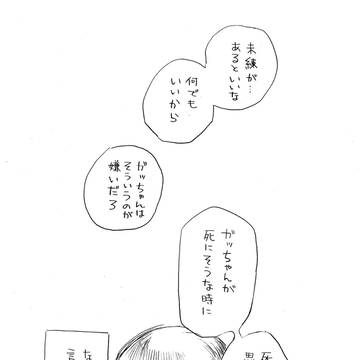 未練が…
あるといいな
何でも
いいから
ガッちゃんは
そういうのが
嫌いだろ
ガッちゃんが
死にそうな時に